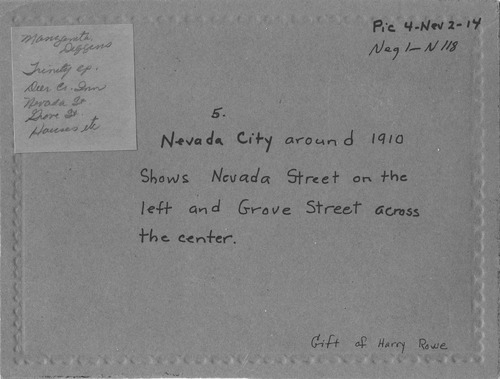 Pic 4-Nev 2-14
Neg 1-N 118
Manzanita
Diggens
Trinity Ep.
Deer Cr. Inn
Nevada St
Grove St
Houses etc
5.
Nevada City around 1910
Shows Nevada Street on the
left and Grove Street across
the center.
Gift of Harry Rowe